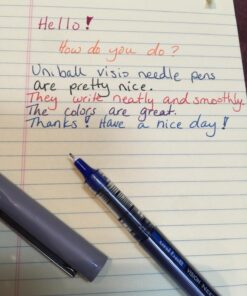 Hello!
How do you do?
Uniball visio needle pens
are pretty nice.
They write neatly and smoothly.
The colors are great.
Thanks! Have a nice day!
uni-ball VISION